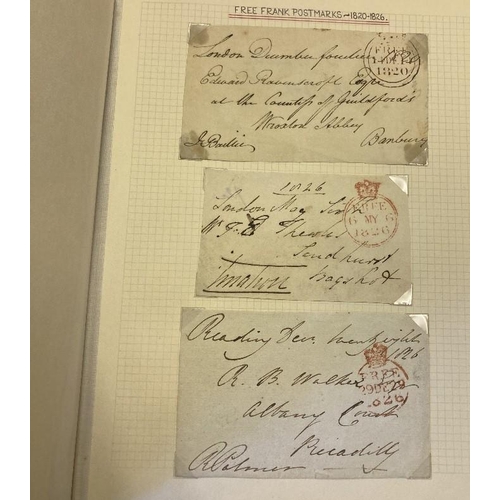 FREE FRANK POSTMARKS - 1820-1826.
London December fourteen 1820
Edward Ravenscroft Esqre
at the Countess of Guildford's
Wroxton Abbey
Banbury
FREE
1820
1826
London May Six
Mr
Sandhurst
Bagshot
FREE
6 MY 6
1826
Reading Dec. twenty eight
1826
R. B. Walker
Albany Court
Piccadilly
R Palmer
FREE
1826